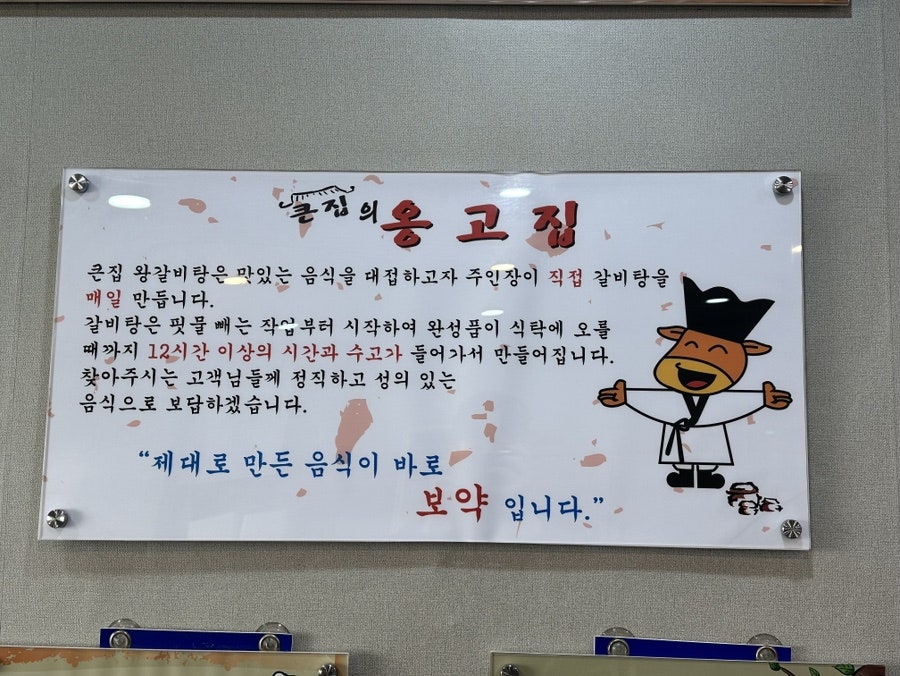 큰집의 옹고집
큰집 왕갈비탕은 맛있는 음식을 대접하고자 주인장이 직접 갈비탕을
매일 만듭니다.
갈비탕은 핏물 빼는 작업부터 시작하여 완성품이 식탁에 오를
때까지 12시간 이상의 시간과 수고가 들어가서 만들어집니다.
찾아주시는 고객님들께 정직하고 성의 있는
음식으로 보답하겠습니다.
“제대로 만든 음식이 바로
보약 입니다.”